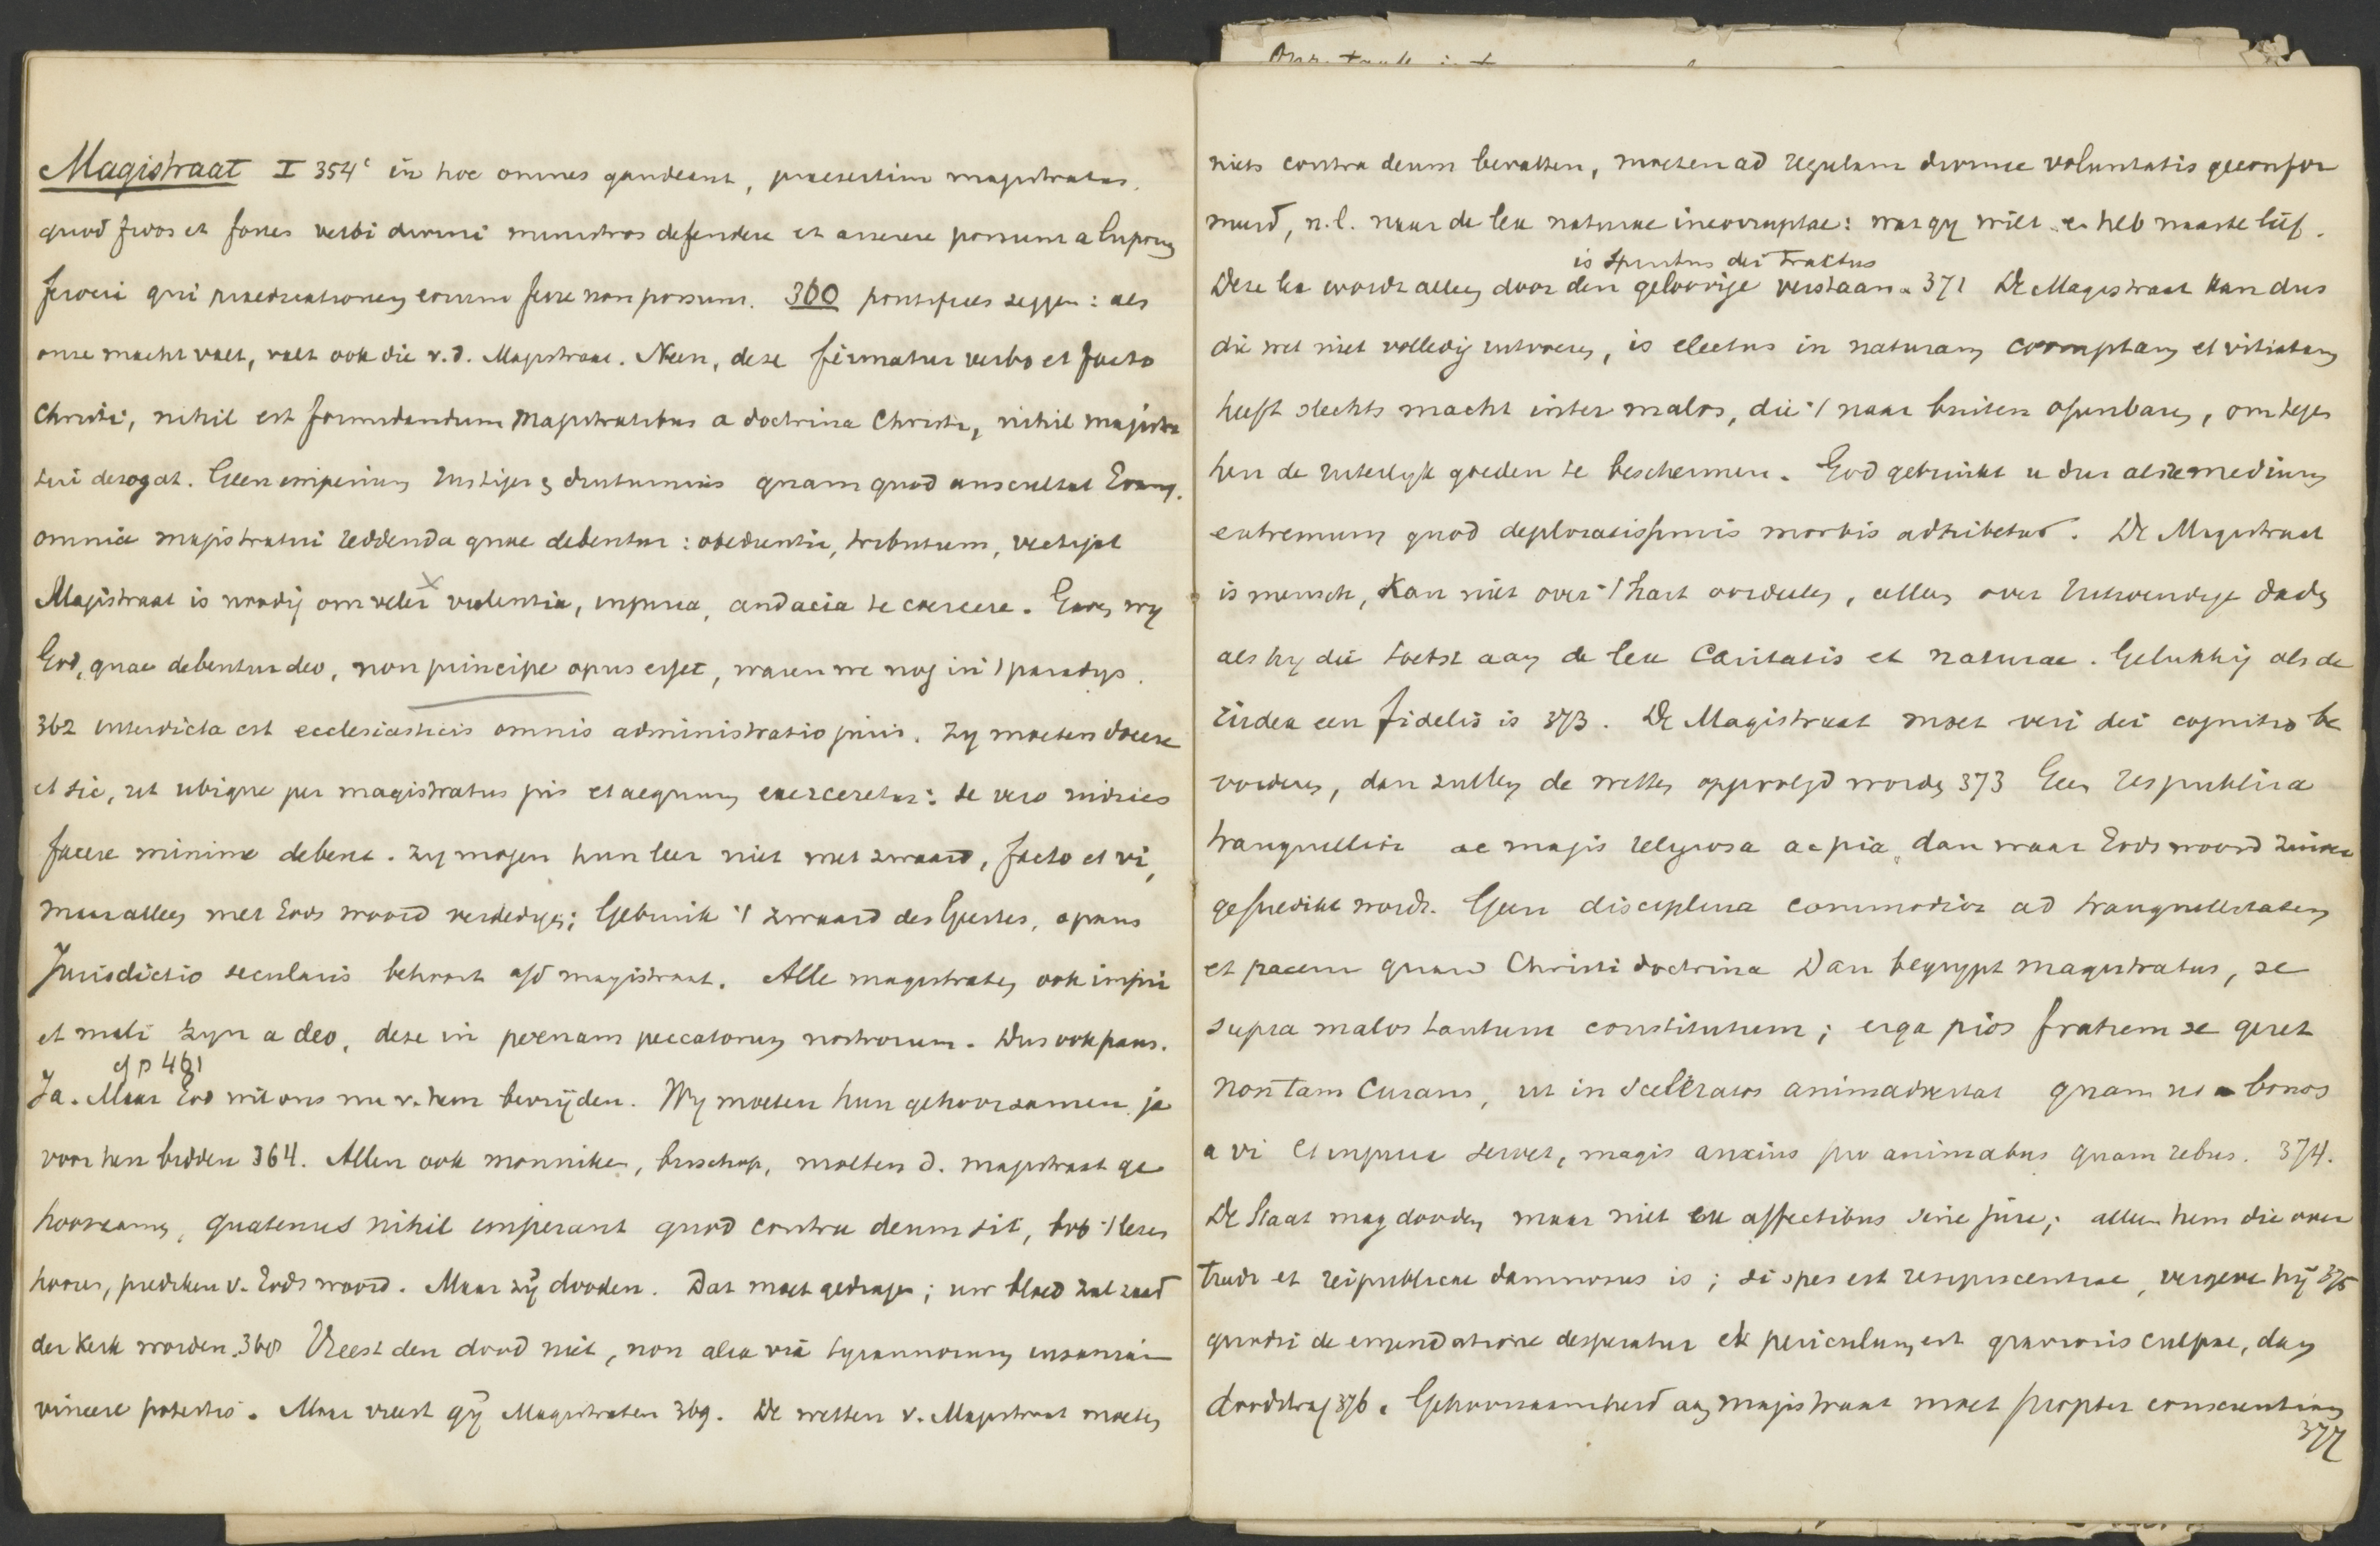 Magistraat I 354c in hoc omnes gaudeant, praesertim magistratus.
quod fidos et fortes verbi divini ministros defendere et asserere possunt a luporum
ferocia qui praedicationem eorum ferre non possunt. 360 pontifices zeggen: als
onze macht valt, valt ook die v. d. Magistraat. Neen, deze firmatur verbo et facto
Christi, nihil est formidandum Magistratibus a doctrina Christi, nihil magistra
tui derogat. Geen imperium rustiger & diuturnius quam quod auscultat Evang.
omnia magistratui reddenda quae debentur: obedientia, tributum, vectigal
Magistraat is noodig om veler violentia, injuria, audacia te coercere. Gaven wy
God, quae debentur deo, non principe opus esset, waren we nog in 't paradys.
362 interdicta est ecclesiasticis omnis administratio juris. Zy moeten docere
et sic, ut ubique per magistratus jus et aequum exerceretur: se vero iudices
facere minime debent. Zy mogen hun leer niet met zwaard, facto et vi,
maar alleen met Gods woord verdedigen; Gebruik 't zwaard des Geestes, o paus
Jurisdictio secularis behoort a/d magistraat. Alle magistraten, ook impii
et mali zyn a deo, deze in poenam peccatorum nostrorum. Dus ook paus.
cf p 461
Ja. Maar God wil ons nu v. hem bevrijden. Wy moeten hun gehoorzamen, ja
voor hen bidden 364. Allen ook monniken, bisschop, moeten d. magistraat ge
hoorzamen, quatenus nihil imperant quod contra deum sit, bvb 't lezen
hooren, prediken v. Gods woord. Maar zij dooden. Dat moet gedragen; uw bloed zal zaad
der Kerk worden. 368 Vreest den dood niet, non alia via tyrannorum insaniam
vincere potestis. Maar vreest gij Magistraten 369. De wetten v. Magistraat moeten
niets contra deum bevatten, moeten ad regulam divinae voluntatis geconfor
meerd, n.l. naar de lex naturae incorruptae: wat gy wilt en heb naaste lief.
is Spiritus dei tractus
Deze lex wordt alleen door den geloovige verstaan. 371 De Magistraat kan dus
die wet niet volledig uitvoeren, is electus in naturam corruptam et vitiatam
heeft slechts macht inter malos, die 't naar buiten openbaren, om tegen
hen de uiterlijk goeden te beschermen. God gebruikt u dus als remedium
extremum quod deploratissimis morbis adhibetur. De Magistraat
is mensch, kan niet over 't hart oordeelen, alleen over uitwendige daden
als hy die toetst aan de lex Caritatis et naturae. Gelukkig als de
iudex een fidelis is 373. De Magistraat moet veri dei cognitio be
vorderen, dan zullen de wetten opgevolgd worden 373 Geen respublica
tranquillior ac magis religiosa ac pia, dan waar Gods woord zuiver
gepredikt wordt. Geen disciplina commodior ad tranquillitatem
et pacem quam Christi doctrina Dan begrypt magistratus, se
supra malos tantum constitutum; erga pios fratrem se geret
non tam curans, ut in sceleratos animadvertat quam ut bonos
a vi et injuria servet, magis anxius pro animabus quam rebus. 374.
De Staat mag dooden maar niet ex affectibus sine jure; alleen hem die over
treedt et reipublicae damnosus is; si spes est resipiscentiae, vergeve hij 375
quodsi de emendatione desperatur et periculum est gravioris culpae, dan
doodstraf 376. Gehoorzaamheid aan magistraat moet propter conscientiam
377